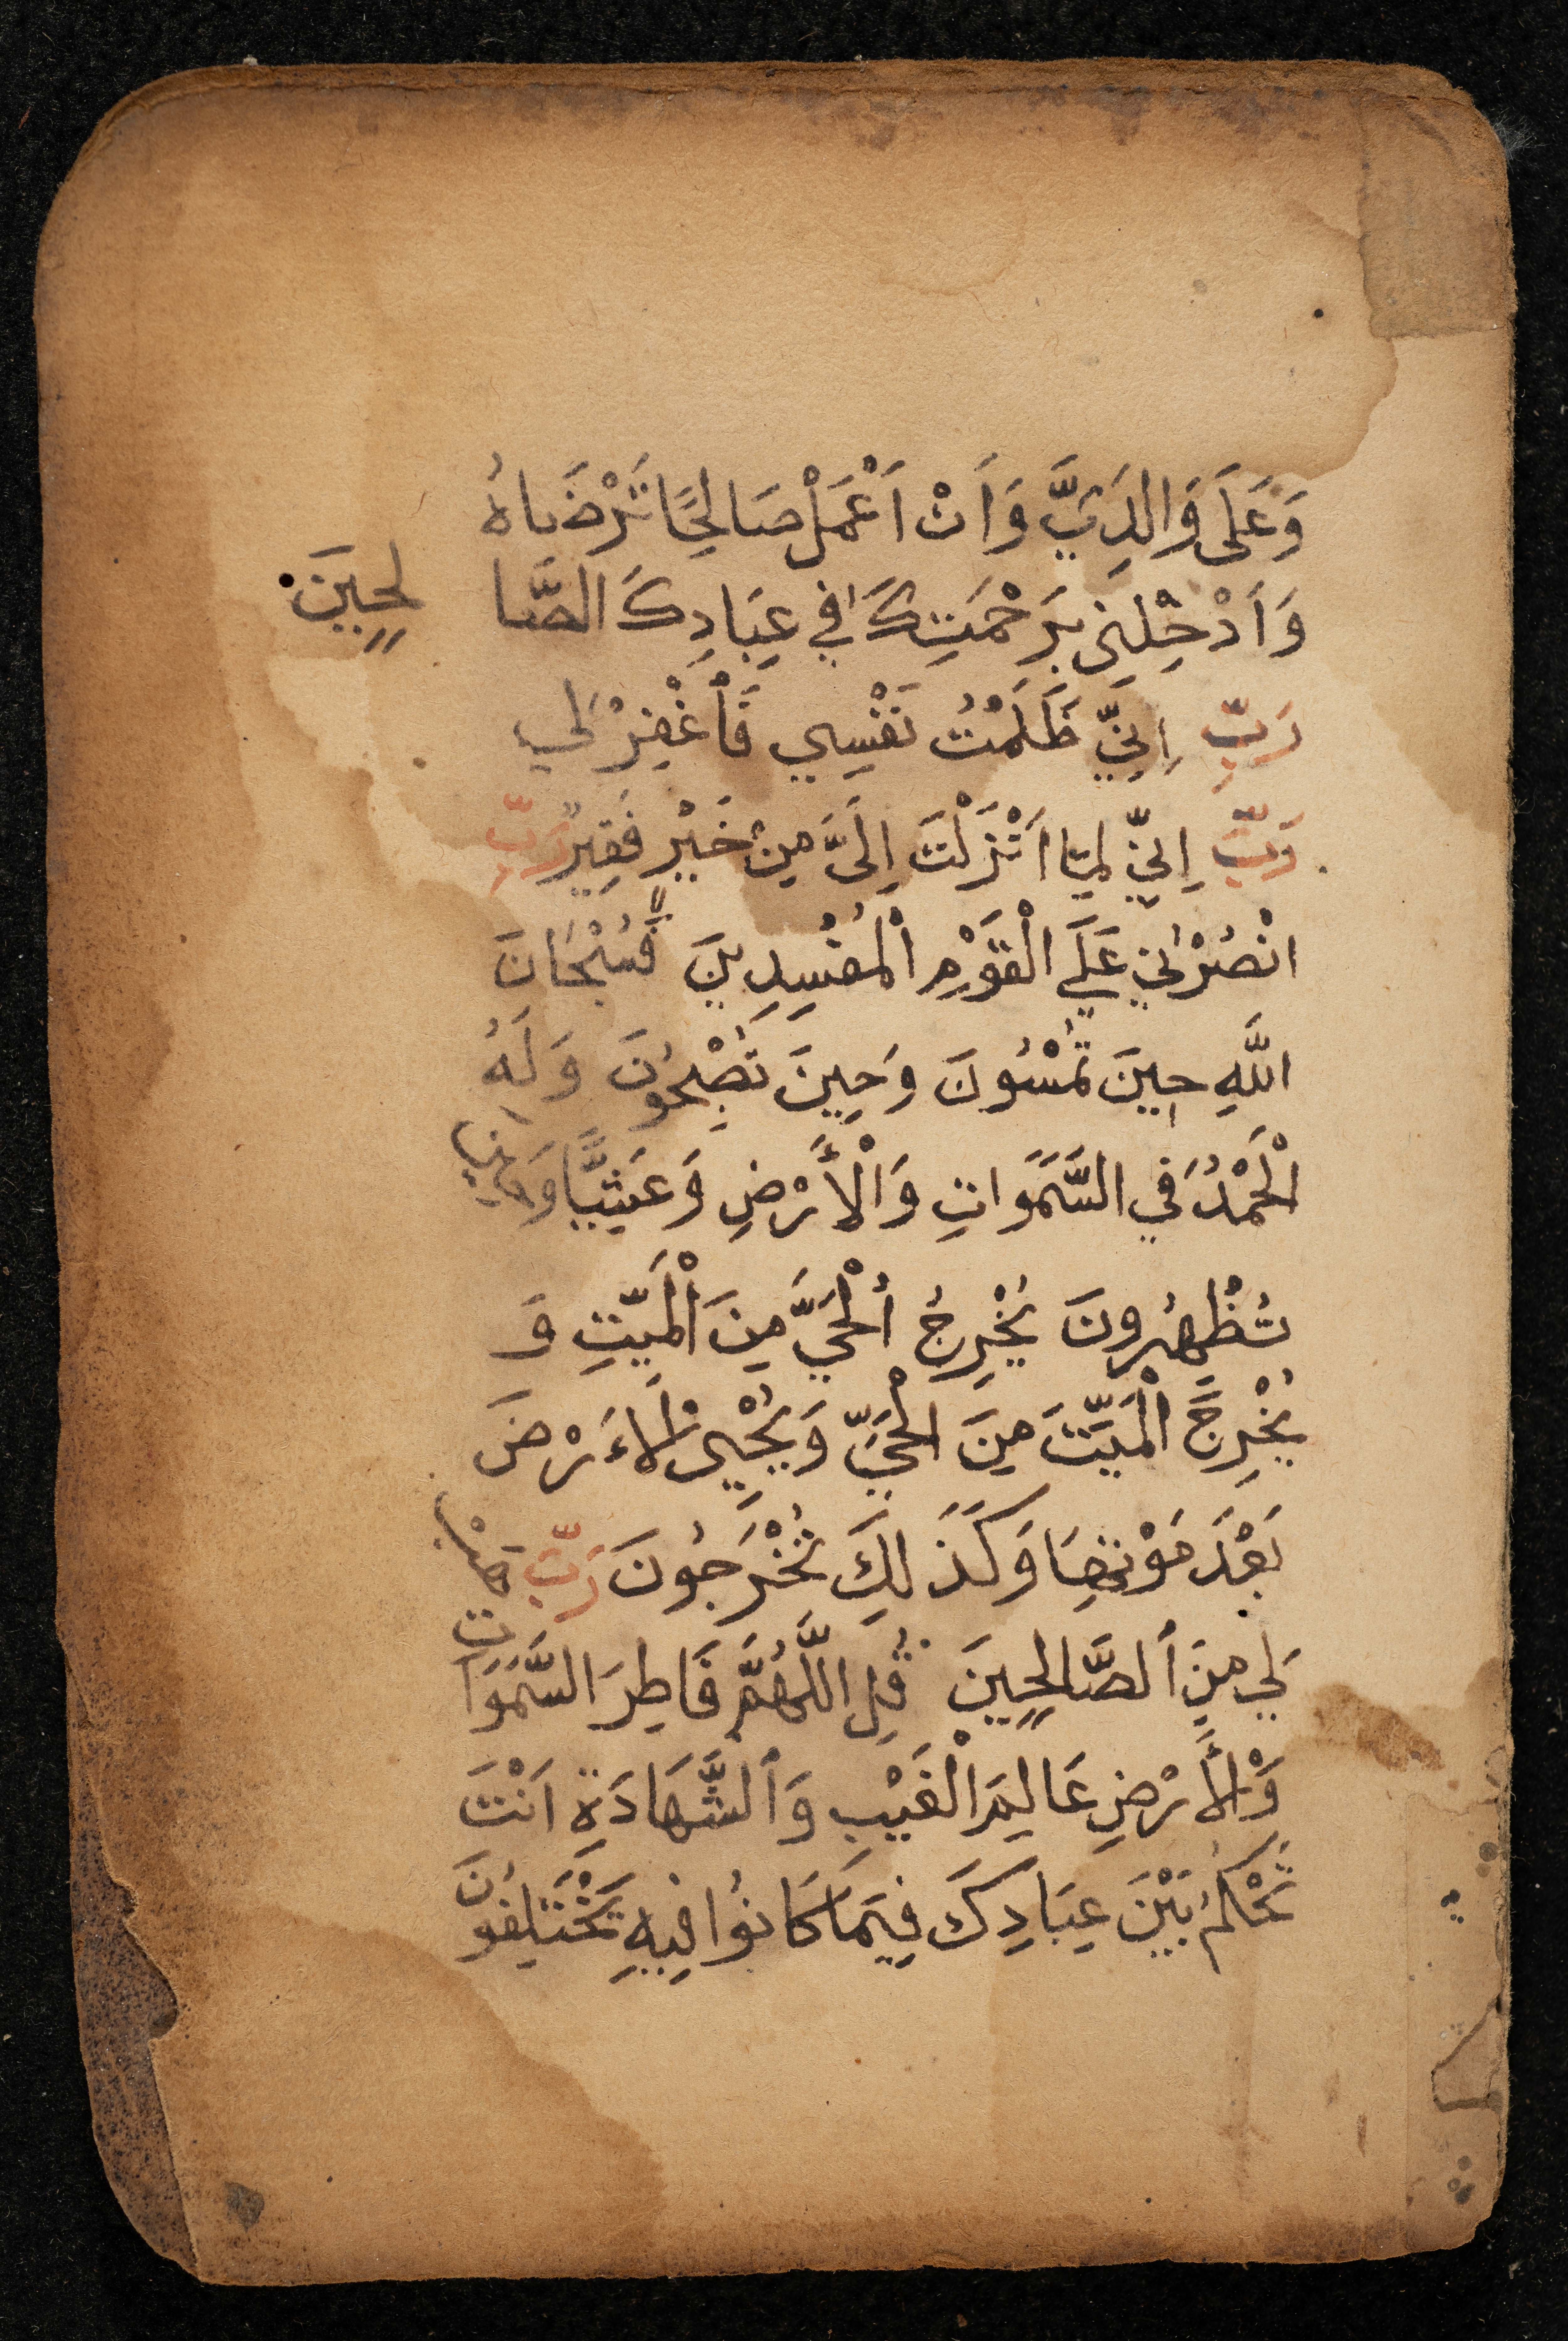 وَعَلَى وَالِدَيَّ وَأَنْ أَعْمَلْ صَالِحًا تَرْضَاهُ
وَأَدْخِلْنِي بِرَحْمَتِكَ فِي عِبَادِكَ الصَّا لِحِينَ
رَبِّ إِنِّي ظَلَمْتُ نَفْسِي فَاْغْفِرْ لِي
رَبِّ إِنِّي لِمَا أَنْزَلْتَ إِلَيَّ مِنْ خَيْرٍ فَقِيرٌ رَبِّ
انْصُرْنِي عَلَى الْقَوْمِ الْمُفْسِدِينَ فَسُبْحَانَ
اللَّهِ حِينَ تُمْسُونَ وَحِينَ تُصْبِحُونَ وَلَهُ
الْحَمْدُ فِي السَّمَوَاتِ وَالْأَرْضِ وَعَشِيًّا وَحِينَ
تُظْهِرُونَ يُخْرِجُ الْحَيَّ مِنَ الْمَيِّتِ وَ
يُخْرِجُ الْمَيِّتَ مِنَ الْحَيِّ وَيُحْيِي الْأَرْضَ
بَعْدَ مَوْتِهَا وَكَذَلِكَ تُخْرَجُونَ رَبِّ هَبْ
لِي مِنَ الصَّالِحِينَ قُلِ اللَّهُمَّ فَاطِرَ السَّمَوَاتِ
وَالْأَرْضِ عَالِمَ الْغَيْبِ وَالشَّهَادَةِ أَنْتَ
تَحْكُمُ بَيْنَ عِبَادِكَ فِيمَا كَانُوا فِيهِ يَخْتَلِفُونَ